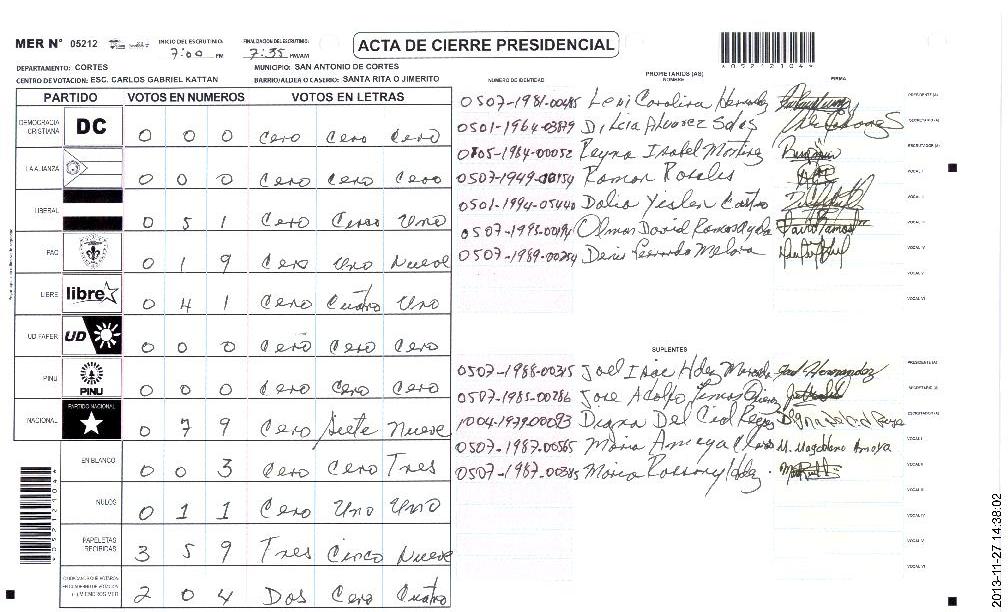 MER N° 05212 INICIO DEL ESCRUTINIO: 7:00 PM FINALIZACION ESCRUTINIO: 7:35 PM/AM ACTA DE CIERRE PRESIDENCIAL
*05212104*
DEPARTAMENTO: CORTES MUNICIPIO: SAN ANTONIO DE CORTES
CENTRO DE VOTACION: ESC. CARLOS GABRIEL KATTAN BARRIO/ALDEA O CASERIO: SANTA RITA O JIMERITO
PARTIDO VOTOS EN NUMEROS VOTOS EN LETRAS
DEMOCRACIA CRISTIANA DC 0 0 0 Cero Cero Cero
LA ALIANZA 0 0 0 Cero Cero Cero
LIBERAL 0 5 1 Cero Cinco Uno
PAC 0 1 9 Cero Uno Nueve
LIBRE libre 0 4 1 Cero Cuatro Uno
UD FAPER UD 0 0 0 Cero Cero Cero
PINU PINU 0 0 0 Cero Cero Cero
NACIONAL PARTIDO NACIONAL 0 7 9 Cero Siete Nueve
EN BLANCO 0 0 3 Cero Cero Tres
NULOS 0 1 1 Cero Uno Uno
PAPELETAS RECIBIDAS 3 5 9 Tres Cinco Nueve
2 0 4 Dos Cero Cuatro
NUMERO DE IDENTIDAD PROPIETARIOS (AS) NOMBRE FIRMA
0507-1981-00485 Leni Carolina PRESIDENTE (A)
0501-1964-03879 Dilcia Alvarez Salas SECRETARIO (A)
Reyna Isabel Martinez ESCRUTADOR (A)
Ramon Rosales VOCAL I
0501-1994-05440 Dalia Yeslen Castro VOCAL II
Olman David Ramos VOCAL III
0507-1989-00254 Denis VOCAL IV
VOCAL V
VOCAL VI
SUPLENTES
0507-1988-00315 Joel Isac Hdez Joel Hernandez PRESIDENTE (A)
0507-1985-00286 Jose Adolfo Lemos SECRETARIO (A)
1004-1979-00093 Digna Del Cid Reyes Digna del Cid Reyes ESCRUTADOR (A)
0507-1987-00565 Maria Amaya M. Magdalena Amaya VOCAL I
0507-1987-00385 Hdez VOCAL II
VOCAL III
VOCAL IV
VOCAL V
VOCAL VI
*05212104*
2013-11-27 14:38:02